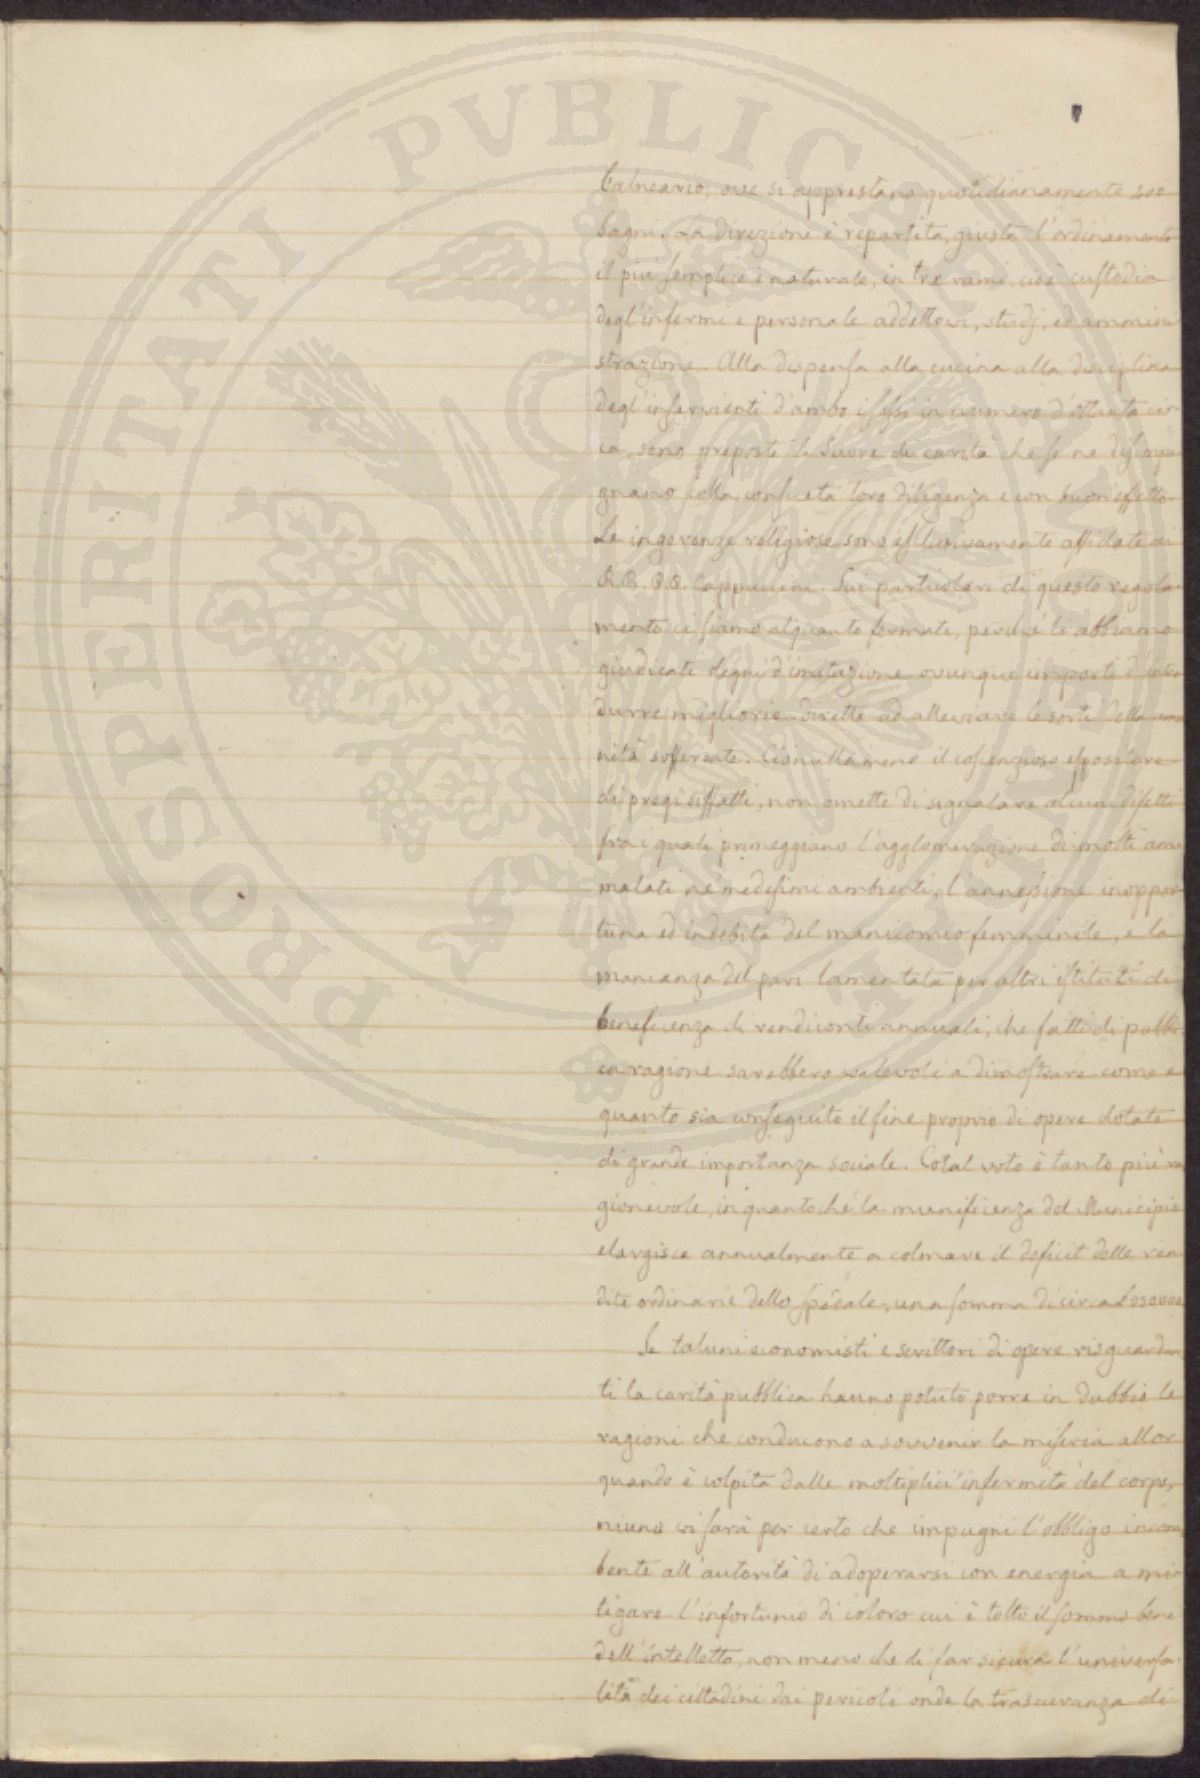 PROSPERITATI PVBLICAE
balneario, ove si apprestano quotidianamente
bagni. La direzione è repartita, giusta l'ordinamento
il più semplice e naturale, in tre rami, cioè custodia
degl'infermi e personale addettovi, studj, ed ammini
strazione. Alla dispensa alla cucina alla disciplina
degl'inservienti d'ambo i sessi in numero d'ottanta cir-
ca, sono preposte le Suore di carità che se ne disimpe
gnano colla consueta loro diligenza e con buon effetto.
Le ingerenze religiose sono esclusivamente affidate ai
R.R. P.P. Cappuccini. Sui particolari di questo regola-
mento ci siamo alquanto fermati, perchè li abbiamo
giudicati degni d'imitazione ovunque importi d'intro
durre migliorie dirette ad alleviare le sorti della uma
nità sofferente. Cionullameno il coscenzioso espositore
di pregi siffatti, non omette di signalare alcuni difetti
fra i quali primeggiano l'agglomerazione di molti am
malati ne' medesimi ambienti, l'annessione inoppor-
tuna ed indebita del manicomio femminile, e la
mancanza del pari lamentata per altri istituti di
beneficenza di rendiconti annuali, che fatti di pubbli
ca ragione sarebbero valevoli a dimostrare come e
quanto sia conseguito il fine proprio di opere dotate
di grande importanza sociale. Cotal voto è tanto più ra
gionevole, in quanto chè la munificenza del Municipio
elargisce annualmente a colmare il deficit delle ren
dite ordinarie dello spedale, una somma di circa
Se taluni economisti e scrittori di opere risguardan
ti la carità pubblica hanno potuto porre in dubbio le
ragioni che conducono a sovvenir la miseria allor
quando è colpita dalle moltiplici infermità del corpo,
niuno vi sarà per certo che impugni l'obbligo incom
bente all'autorità di adoperarsi con energia a mi-
tigare l'infortunio di coloro cui è tolto il sommo bene
dell'intelletto, non meno che di far sicura l'universa-
lità dei cittadini dai pericoli onde la trascuranza di